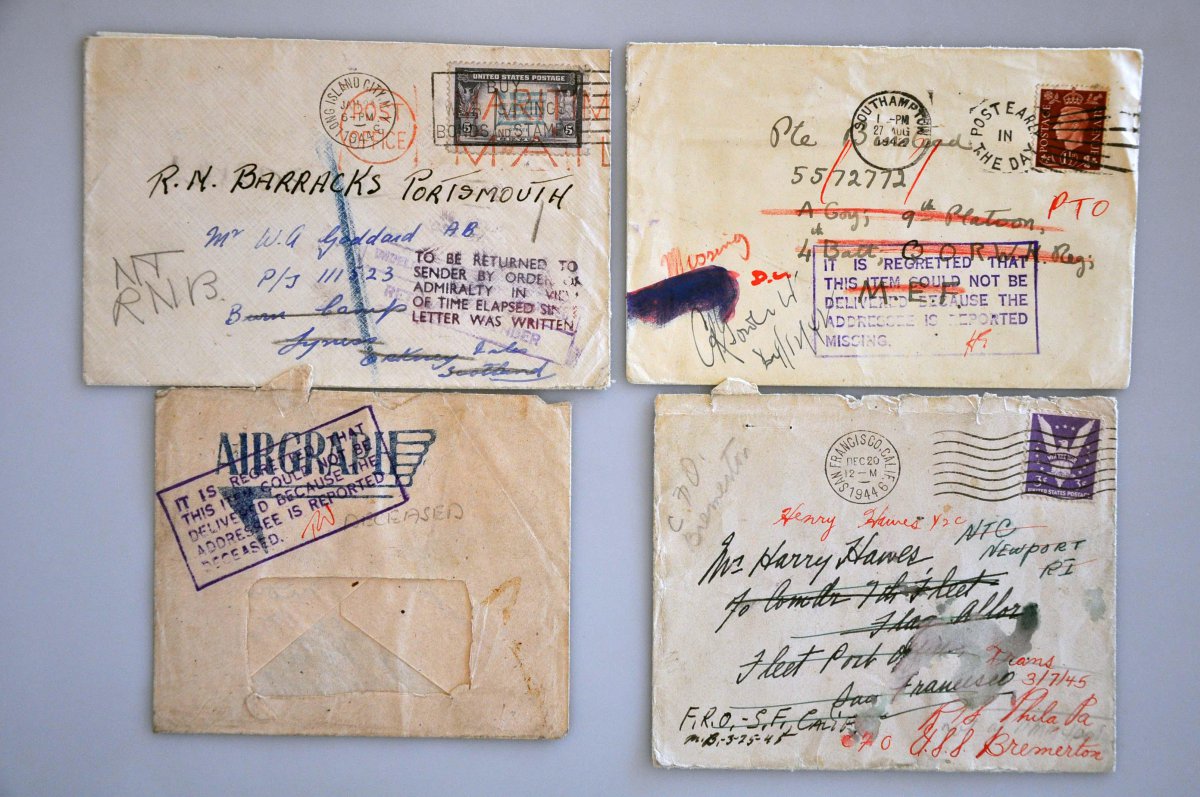 LONG ISLAND CITY, N.Y.
1945
UNITED STATES POSTAGE
BUY
BONDS AND STAMPS
POST
OFFICE
MARITIME
MAIL
R.N. BARRACKS PORTSMOUTH
Mr W.A Goddard AB
P/J 111523
Camp
Lyness
Orkney Isles
Scotland
NT
RNB.
TO BE RETURNED TO
SENDER BY ORDER OF
ADMIRALTY IN VIEW
OF TIME ELAPSED SINCE
LETTER WAS WRITTEN
SOUTHAMPTON
-PM
27 AUG
1942
POST EARLY
IN
THE DAY
POSTAGE
Pte
5572772
A Coy, 9th Platoon,
4th Batt,
Reg,
M.E.F
PTO
Missing
24/12/42
IT IS REGRETTED THAT
THIS ITEM COULD NOT BE
DELIVERED BECAUSE THE
ADDRESSEE IS REPORTED
MISSING.
AIRGRAPH
IT IS REGRETTED THAT
THIS ITEM COULD NOT BE
DELIVERED BECAUSE THE
ADDRESSEE IS REPORTED
DECEASED.
DECEASED
SAN FRANCISCO, CALIF.
DEC 20
12-M
1944
3¢ 3¢
UNITED STATES POSTAGE
Bremerton
Henry Hawes Y2C
Mr Harry Hawes
NTC
NEWPORT
RI
c/o Comdr 7th Fleet
Fleet Post Office
San Francisco
Trans
3/7/45
F.R.O.,-S.F., CALIF.
M.B,-3-25-45
R/S Phila Pa
U.S.S. Bremerton